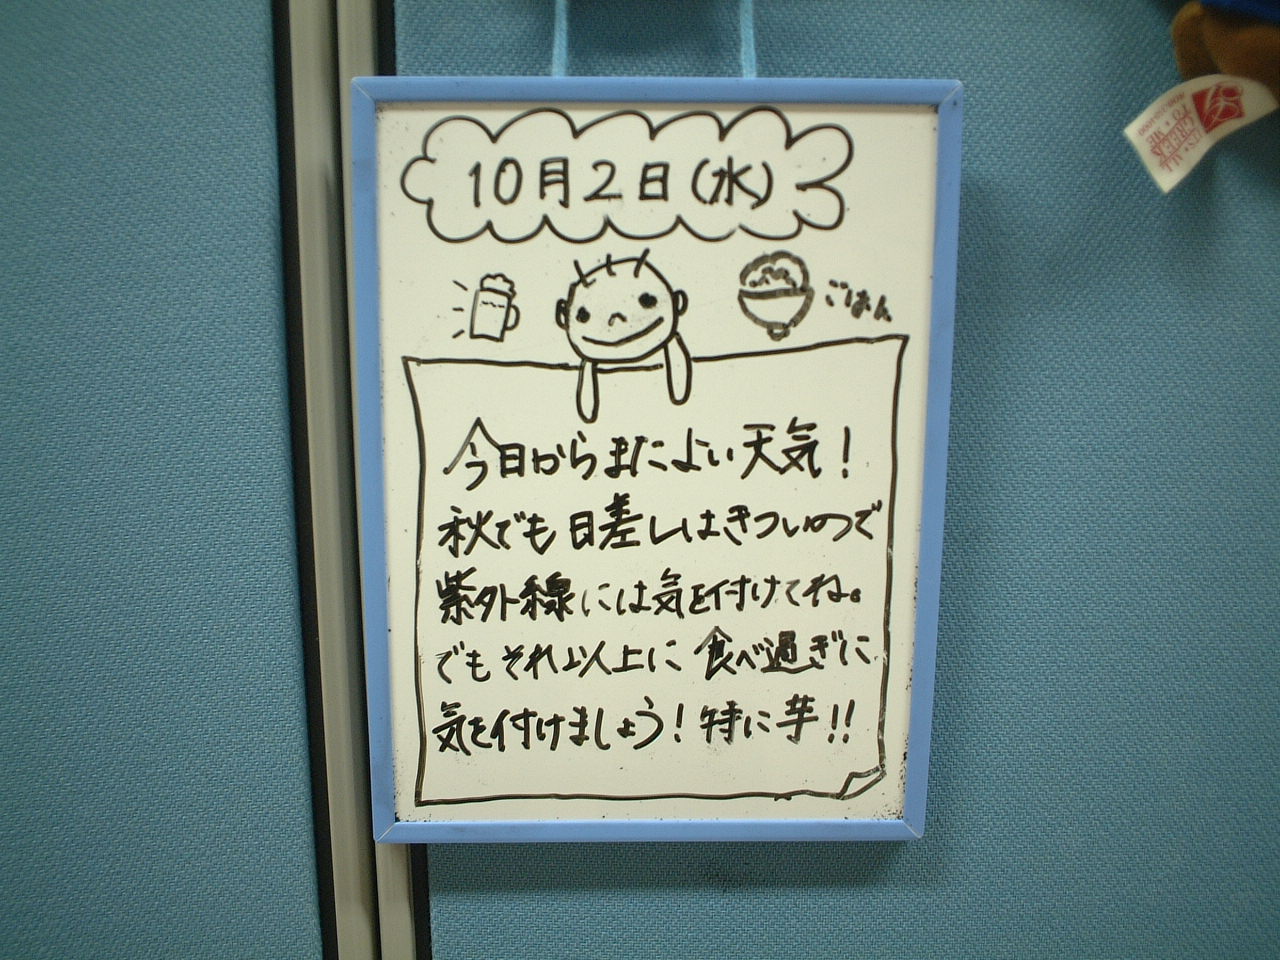 10月2日(水)
ごはん
今日からまたよい天気!
秋でも日差しはきついので
紫外線には気を付けてね。
でもそれ以上に食べ過ぎに
気を付けましょう!特に芋!!